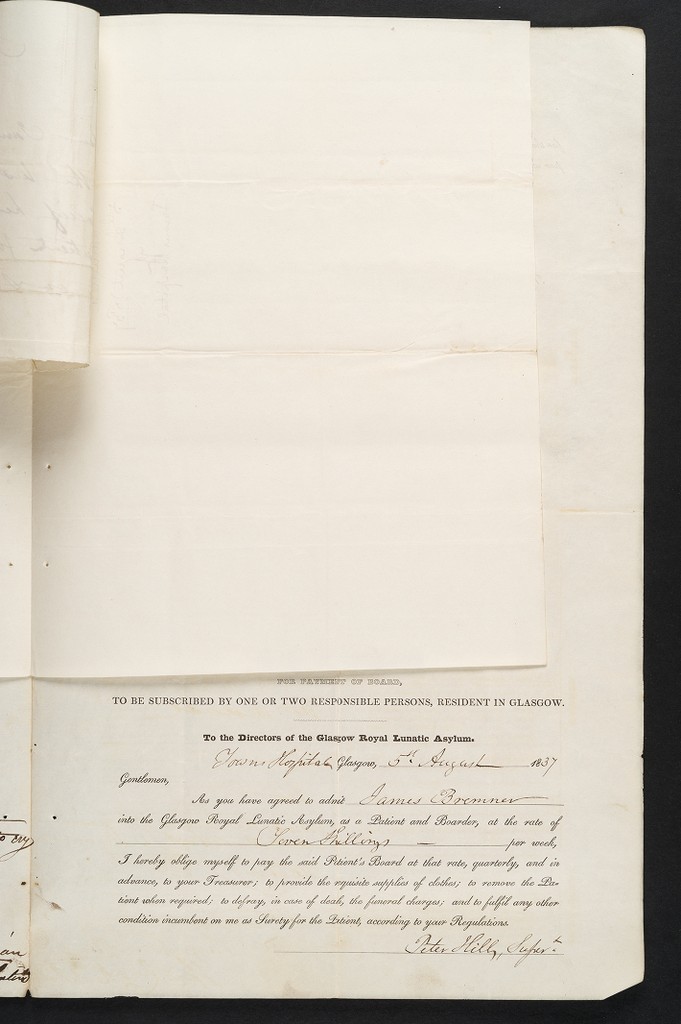 FOR PAYMENT OF BOARD,
TO BE SUBSCRIBED BY ONE OR TWO RESPONSIBLE PERSONS, RESIDENT IN GLASGOW.
To the Directors of the Glasgow Royal Lunatic Asylum.
Towns Hospital, Glasgow, 5th. August 1837
Gentlemen,
As you have agreed to admit James Bremner
into the Glasgow Royal Lunatic Asylum, as a Patient and Boarder, at the rate of
Seven Shillings — per week,
I hereby oblige myself to pay the said Patient's Board at that rate, quarterly, and in
advance, to your Treasurer; to provide the requisite supplies of clothes; to remove the Pa-
tient when required; to defray, in case of death, the funeral charges; and to fulfil any other
condition incumbent on me as Surety for the Patient, according to your Regulations.
Peter Hill, Super.t